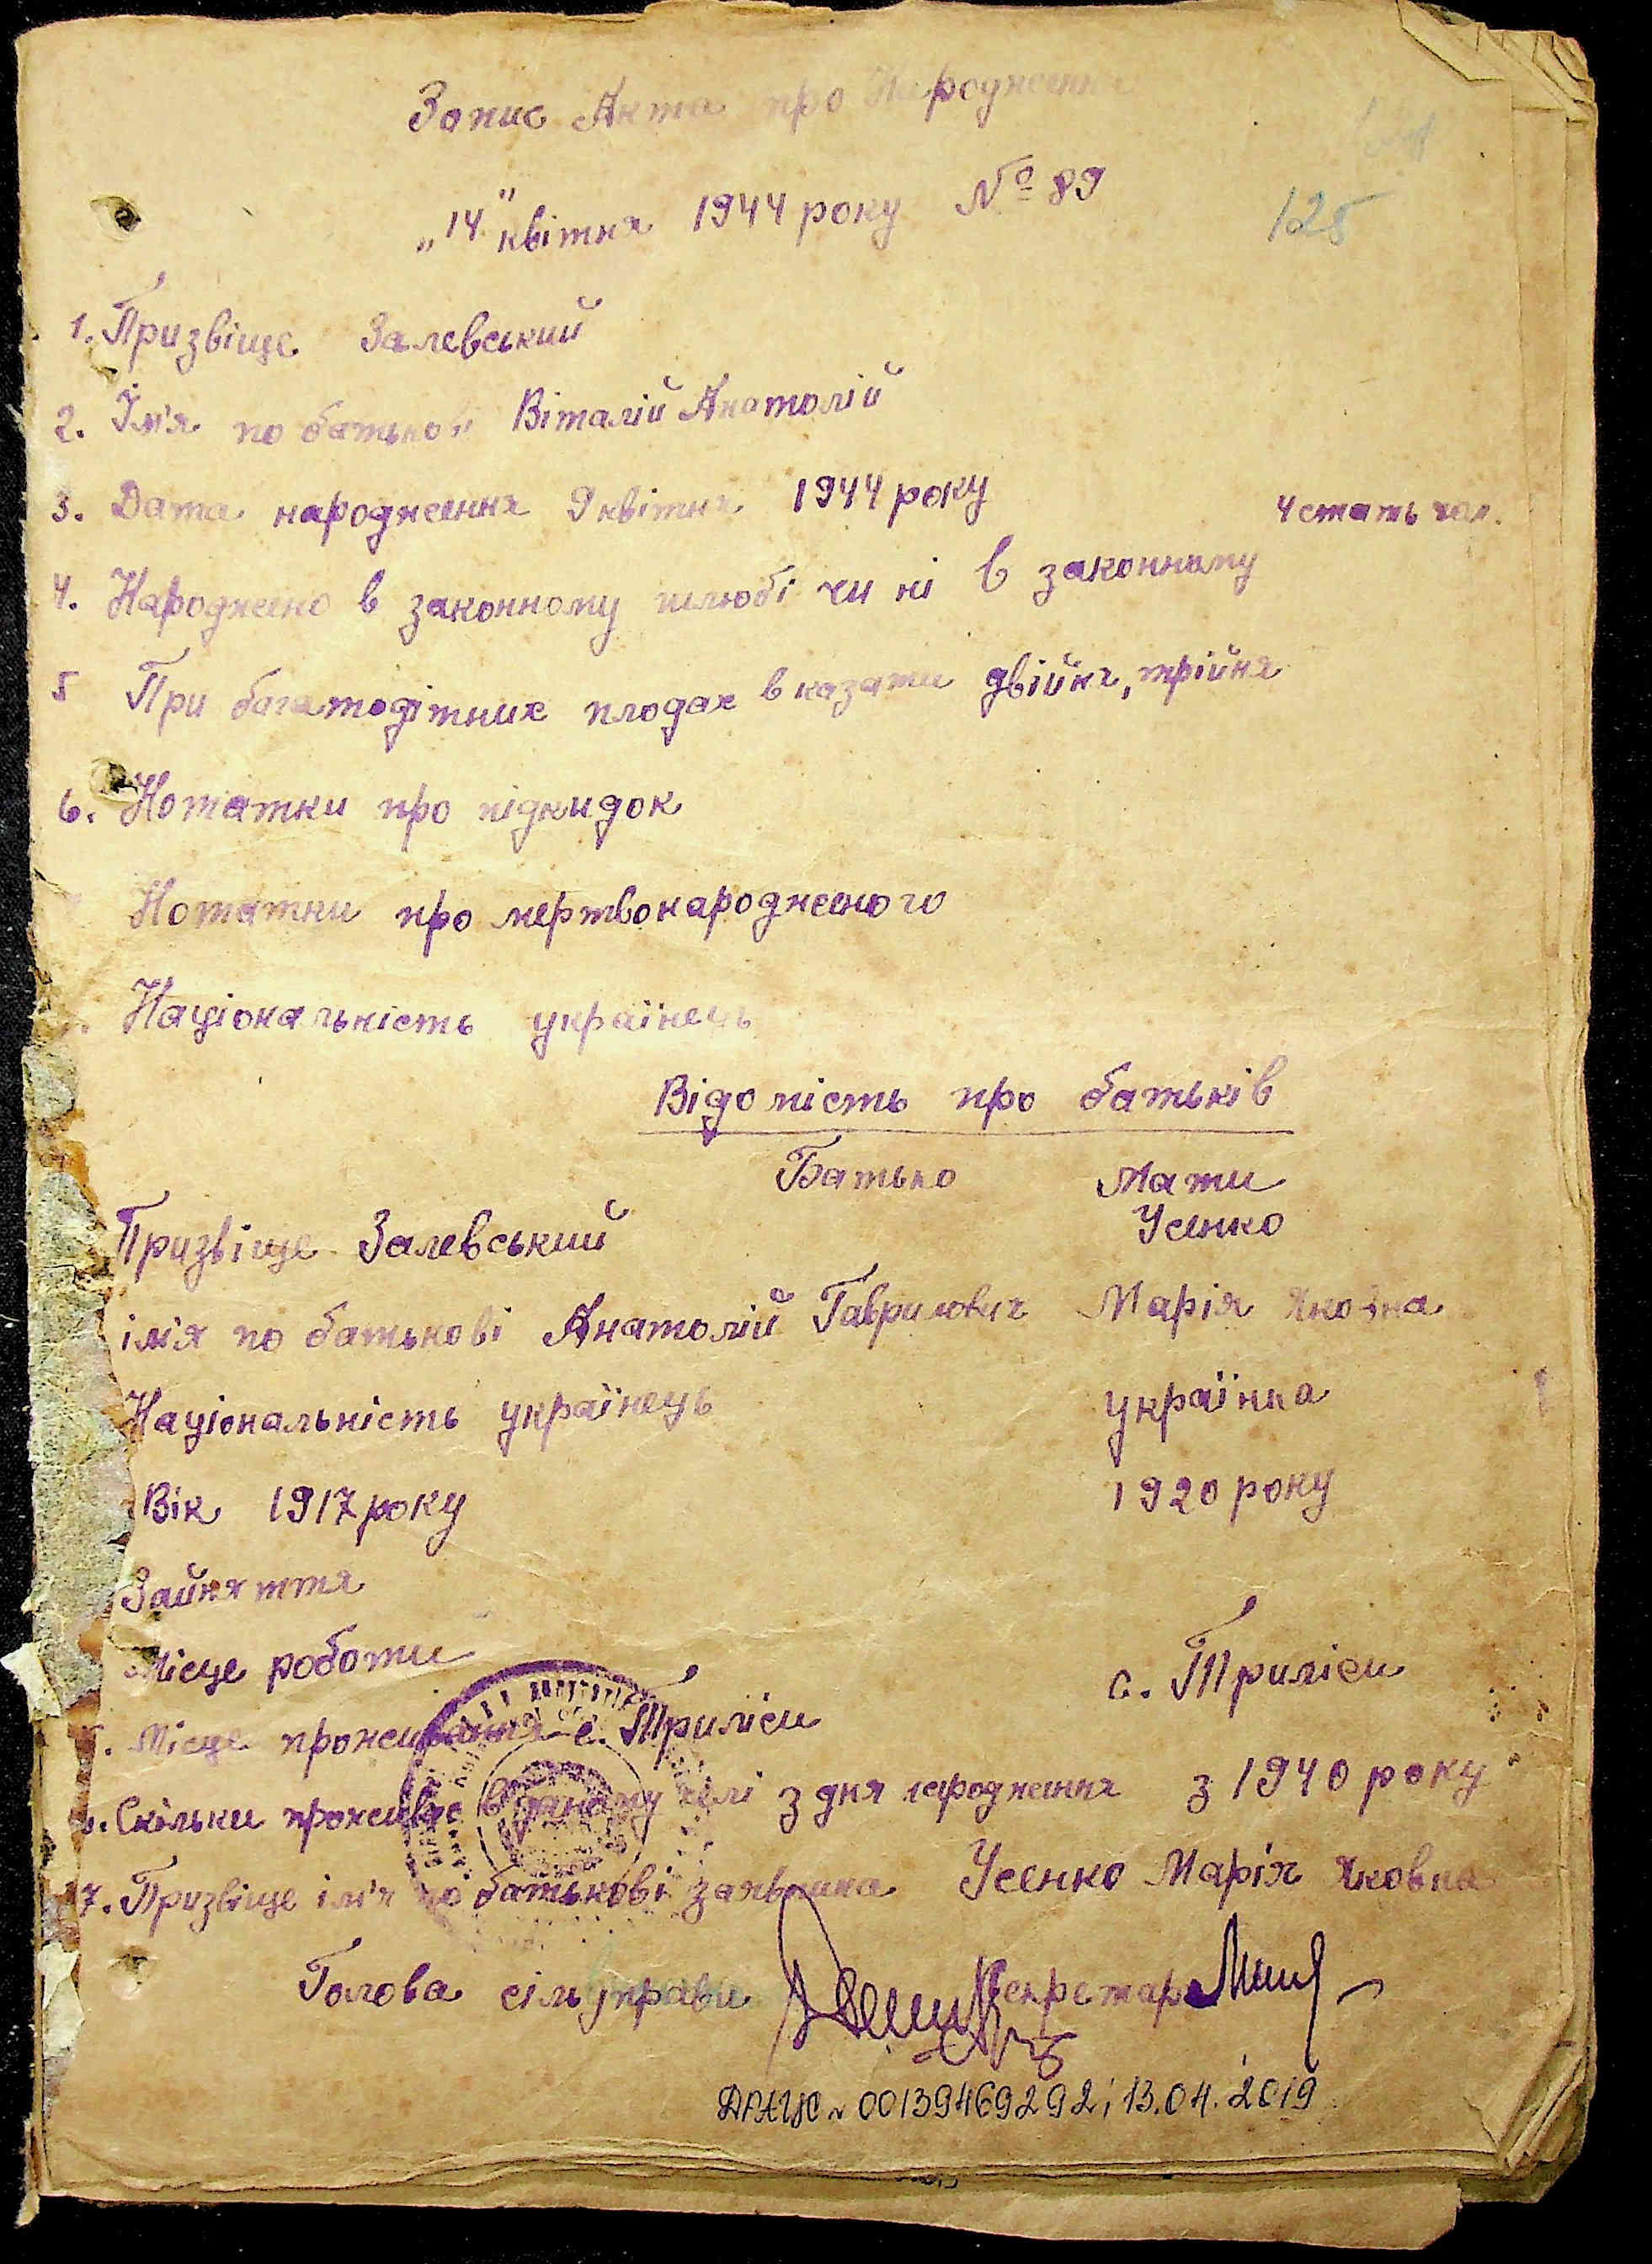 Запис Акта про Народження
„14" квітня 1944 року № 89
125
1. Призвіще Залевський
2. Їм'я по батькові Віталій Анатолій
3. Дата народження 9 квітня 1944 року 4 стать чол.
4. Народжено в законному шлюбі чи ні в законному
5 При багатодітних плодах вказати двійня, трійня
6. Нотатки про підкидок
Нотатки про мертвонародженого
Національність українець
Відомість про батьків
Батько Мати
Призвіще Залевський Усенко
ім'я по батькові Анатолій Гаврилович Марія Яковна
Національність українець українка
Вік 1917 року 1920 року
Зайняття
Місце роботи
Місце проживання с. Триліси с. Триліси
Скільки проживає в даному селі з дня народження з 1940 року
7. Призвіще ім'я по батькові заявника Усенко Марія Яковна
Голова сільуправи Секретар
ДРАЦС № 00139469292; 13.04.2019